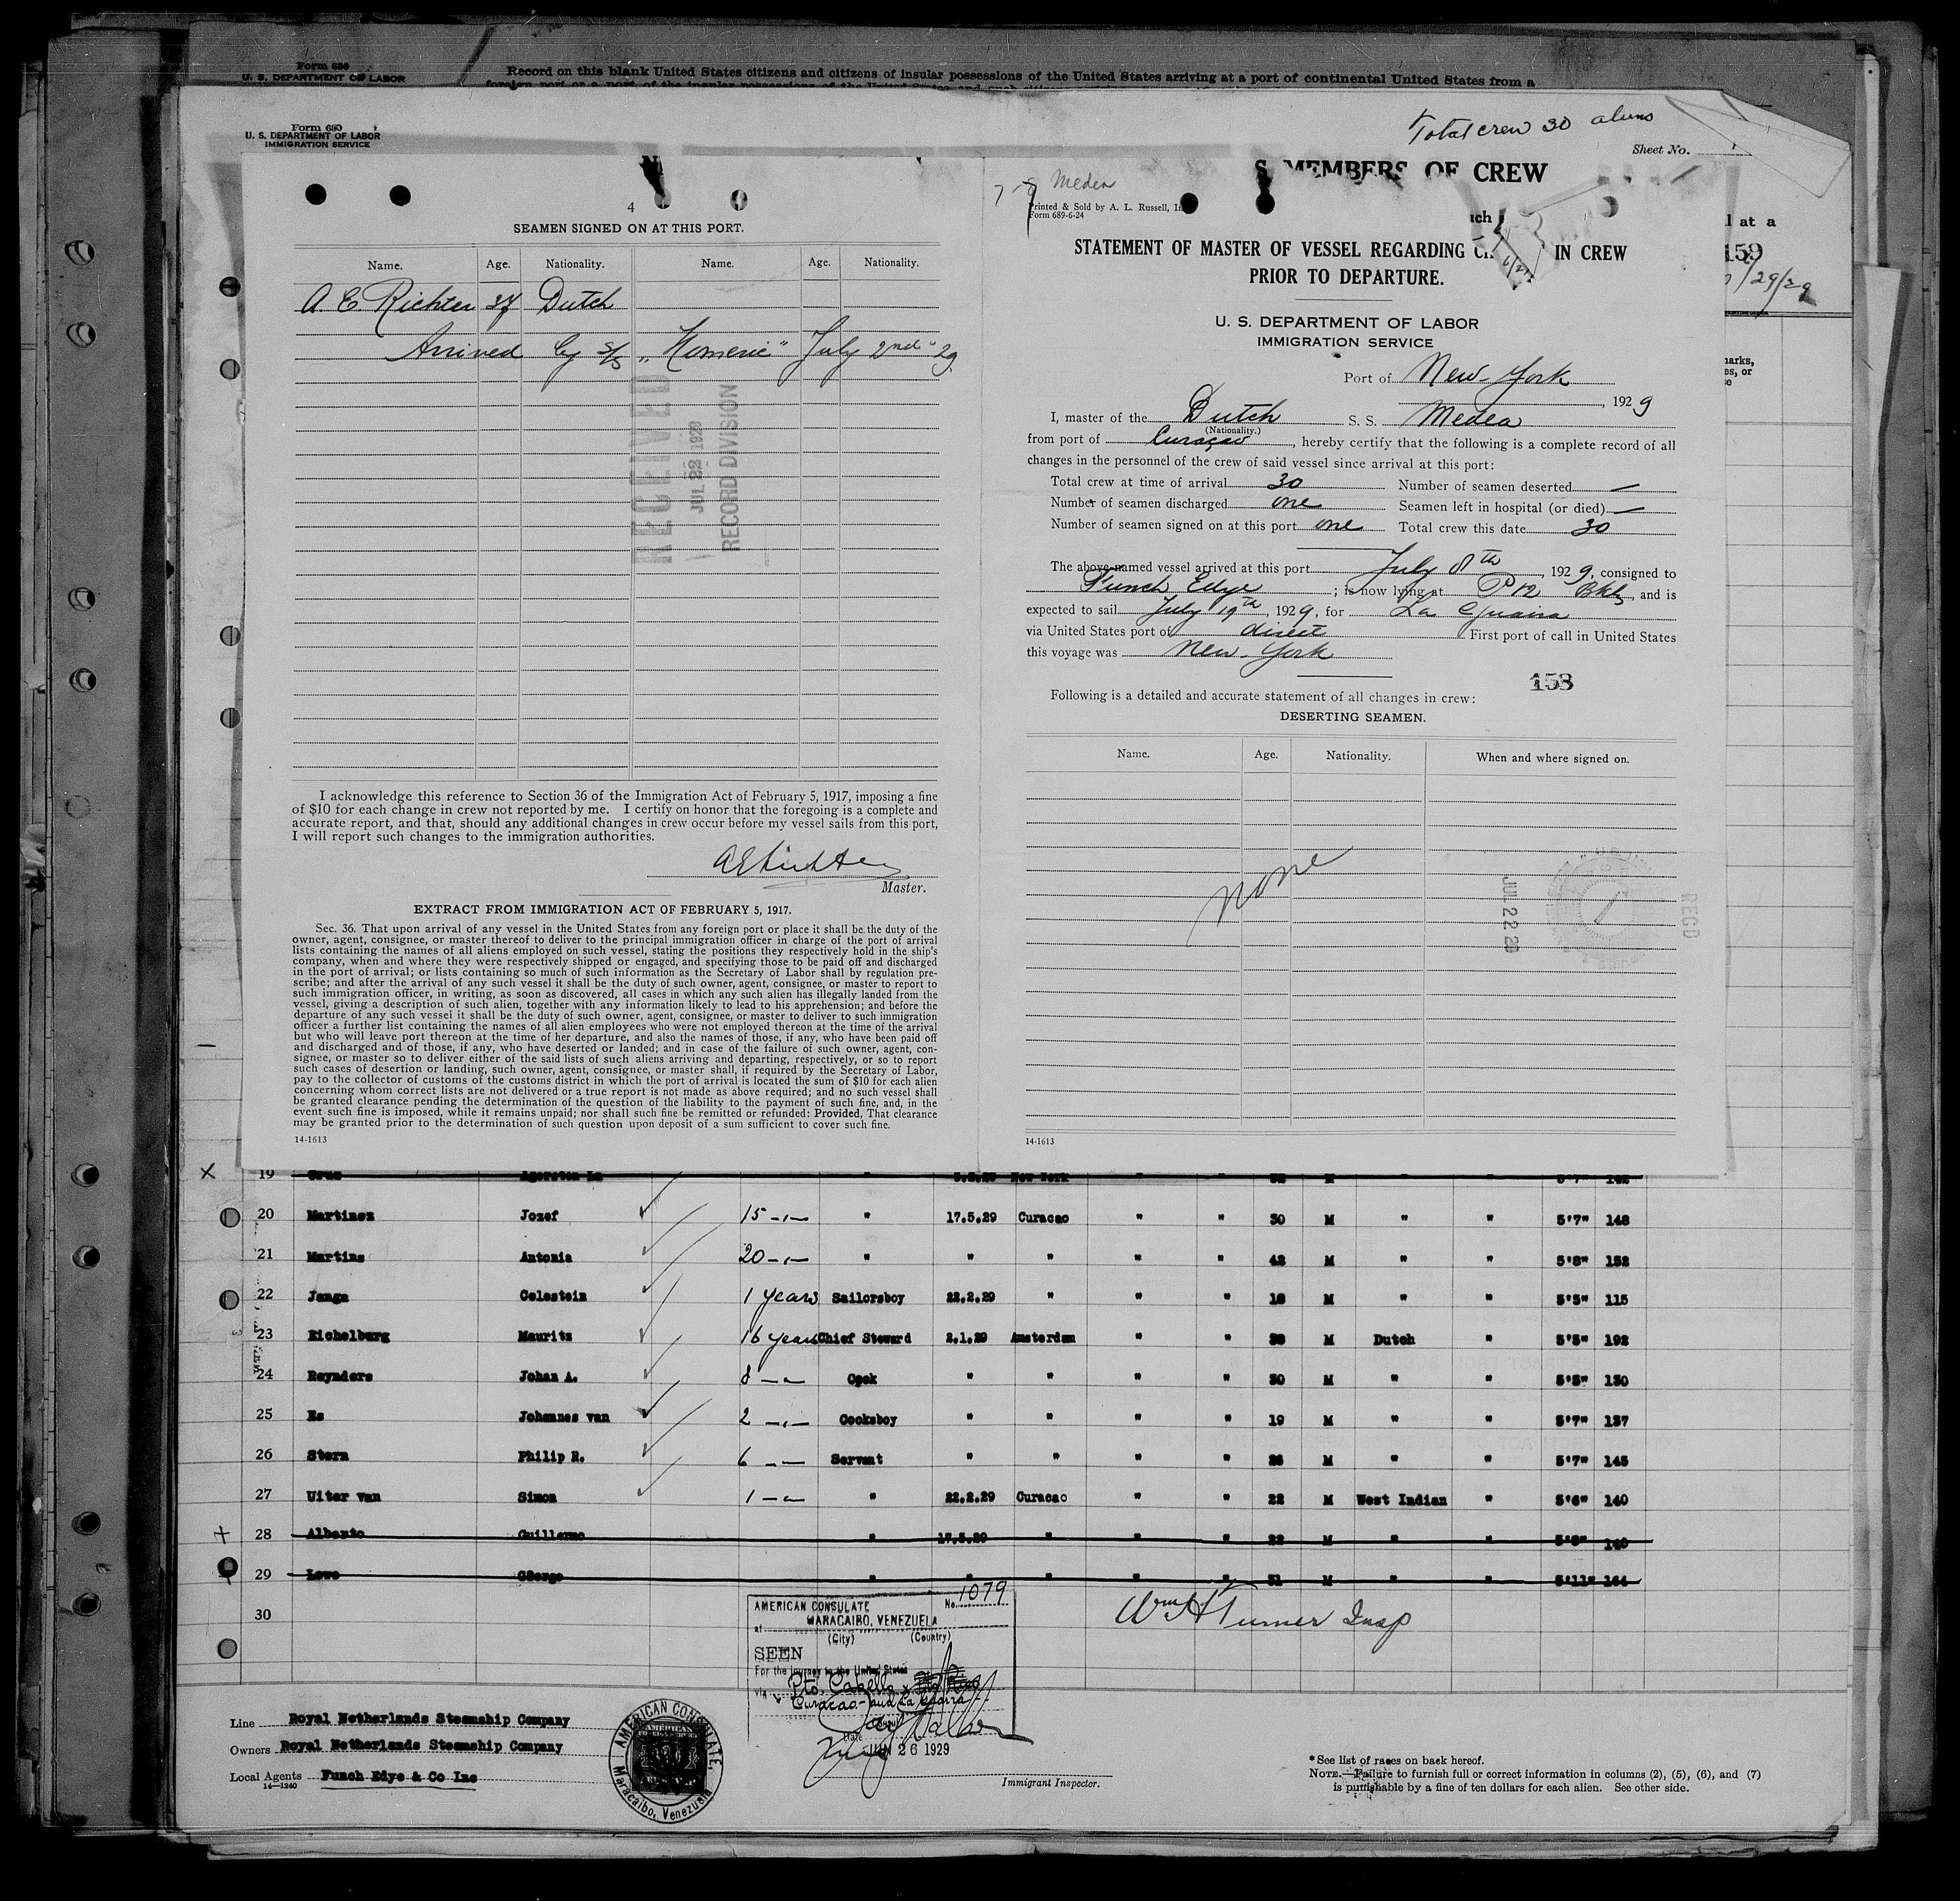 Form 689
U. S. DEPARTMENT OF LABOR
Record on this blank United States citizens and citizens of insular possessions of the United States arriving at a port of continental United States from a
Form 680
U. S. DEPARTMENT OF LABOR
IMMIGRATION SERVICE
Total crew 30 aliens
Sheet No.
S MEMBERS OF CREW
l at a
159
/29/29
4
SEAMEN SIGNED ON AT THIS PORT.
Name. Age. Nationality. Name. Age. Nationality.
A. E. Richter 37 Dutch
Arrived by S/S "Homeric" July 2nd - 29.
RECEIVED
JUL 22 1929
RECORD DIVISION
I acknowledge this reference to Section 36 of the Immigration Act of February 5, 1917, imposing a fine
of $10 for each change in crew not reported by me. I certify on honor that the foregoing is a complete and
accurate report, and that, should any additional changes in crew occur before my vessel sails from this port,
I will report such changes to the immigration authorities.
AERichter
Master.
EXTRACT FROM IMMIGRATION ACT OF FEBRUARY 5, 1917.
Sec. 36. That upon arrival of any vessel in the United States from any foreign port or place it shall be the duty of the
owner, agent, consignee, or master thereof to deliver to the principal immigration officer in charge of the port of arrival
lists containing the names of all aliens employed on such vessel, stating the positions they respectively hold in the ship's
company, when and where they were respectively shipped or engaged, and specifying those to be paid off and discharged
in the port of arrival; or lists containing so much of such information as the Secretary of Labor shall by regulation pre-
scribe; and after the arrival of any such vessel it shall be the duty of such owner, agent, consignee, or master to report to
such immigration officer, in writing, as soon as discovered, all cases in which any such alien has illegally landed from the
vessel, giving a description of such alien, together with any information likely to lead to his apprehension; and before the
departure of any such vessel it shall be the duty of such owner, agent, consignee, or master to deliver to such immigration
officer a further list containing the names of all alien employees who were not employed thereon at the time of the arrival
but who will leave port thereon at the time of her departure, and also the names of those, if any, who have been paid off
and discharged and of those, if any, who have deserted or landed; and in case of the failure of such owner, agent, con-
signee, or master so to deliver either of the said lists of such aliens arriving and departing, respectively, or so to report
such cases of desertion or landing, such owner, agent, consignee, or master shall, if required by the Secretary of Labor,
pay to the collector of customs of the customs district in which the port of arrival is located the sum of $10 for each alien
concerning whom correct lists are not delivered or a true report is not made as above required; and no such vessel shall
be granted clearance pending the determination of the question of the liability to the payment of such fine, and, in the
event such fine is imposed, while it remains unpaid; nor shall such fine be remitted or refunded: Provided, That clearance
may be granted prior to the determination of such question upon deposit of a sum sufficient to cover such fine.
14-1613
Medea
Printed & Sold by A. L. Russell, In
Form 689-6-24
STATEMENT OF MASTER OF VESSEL REGARDING IN CREW
PRIOR TO DEPARTURE.
U. S. DEPARTMENT OF LABOR
IMMIGRATION SERVICE
Port of New-York
, 1929
I, master of the Dutch S. S. Medea
(Nationality.)
from port of Curaçao, hereby certify that the following is a complete record of all
changes in the personnel of the crew of said vessel since arrival at this port:
Total crew at time of arrival 30 Number of seamen deserted —
Number of seamen discharged one Seamen left in hospital (or died) —
Number of seamen signed on at this port one Total crew this date 30
The above-named vessel arrived at this port July 8th, 1929, consigned to
Funch Edye ; is now lying at P 12 Bkl, and is
expected to sail July 19th, 1929, for La Guaira
via United States port of direct First port of call in United States
this voyage was New-York
158
Following is a detailed and accurate statement of all changes in crew:
DESERTING SEAMEN.
Name. Age. Nationality. When and where signed on.
none
JUL 22 29
REC'D
14-1613
19 5.2.29 New York " " 32 M " " 5'7" 142
20 Martinez Jozef 15 -,- " 17.5.29 Curacao " " 30 M " " 5'7" 148
21 Martins Antonia 20 -,- " " " " " 42 M " " 5'8" 152
22 Janga Celestein 1 years Sailorsboy 22.2.29 " " " 18 M " " 5'5" 115
23 Eichelburg Maurits 16 years Chief Steward 2.1.29 Amsterdam " " 38 M Dutch " 5'5" 192
24 Reynders Johan A. 8 -,- Cook " " " " 30 M " " 5'5" 130
25 Es Johannes van 2 -,- Cooksboy " " " " 19 M " " 5'7" 137
26 Stern Philip R. 6 -,- Servant " " " " 26 M " " 5'7" 145
27 Uiter van Simon 1 -,- " 22.2.29 Curacao " " 22 M West Indian " 5'6" 140
28 Alberto Guillermo " 17.5.29 " " " 22 M " " 5'8" 140
29 Lowe George " " " " " 51 M " " 5'11" 164
30
Wm H Turner Insp
AMERICAN CONSULATE No. 1079
at MARACAIBO, VENEZUELA
(City) (Country)
SEEN
For the journey to the United States
via Pto. Cabello
Curacao - and La Guaira
Date JUN 26 1929
AMERICAN CONSULATE, Maracaibo, Venezuela
Line Royal Netherlands Steamship Company
Owners Royal Netherlands Steamship Company
Local Agents Funch Edye & Co Inc
14-1240
Immigrant Inspector.
*See list of races on back hereof.
NOTE.—Failure to furnish full or correct information in columns (2), (5), (6), and (7)
is punishable by a fine of ten dollars for each alien. See other side.